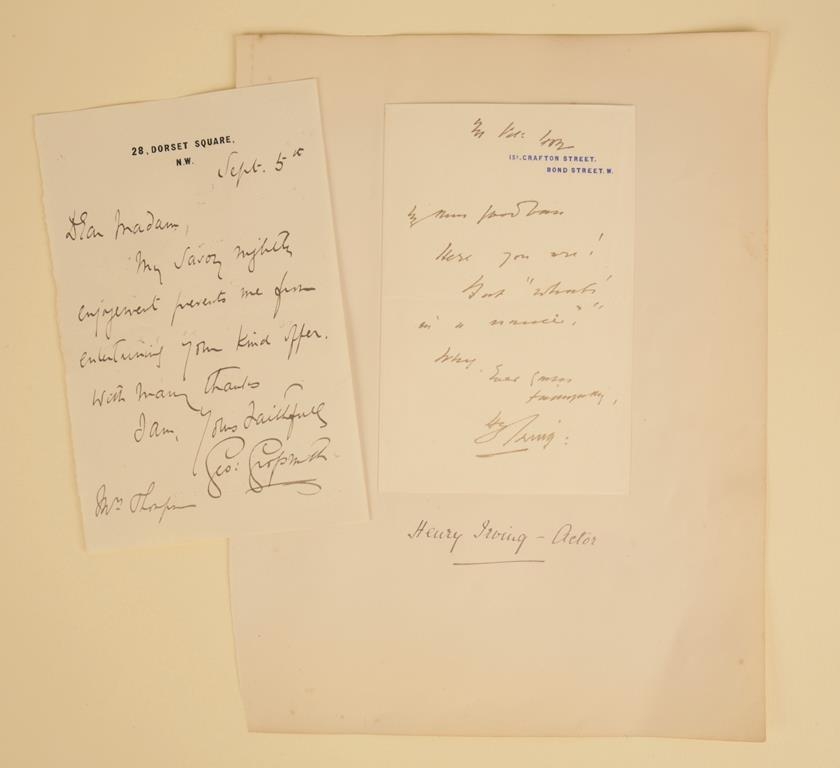 28, DORSET SQUARE,
N.W.
Sept. 5th
Dear Madam,
My Savoy nightly
enjoyment prevents me from
entertaining your kind offer.
With many thanks
I am, Yours faithfully
Geo: Grossmith
Mrs Thompson
15A, GRAFTON STREET,
BOND STREET. W.
My
Here you are!
But "what's
in a name"?
Ever yours
Irving:
Henry Irving – Actor